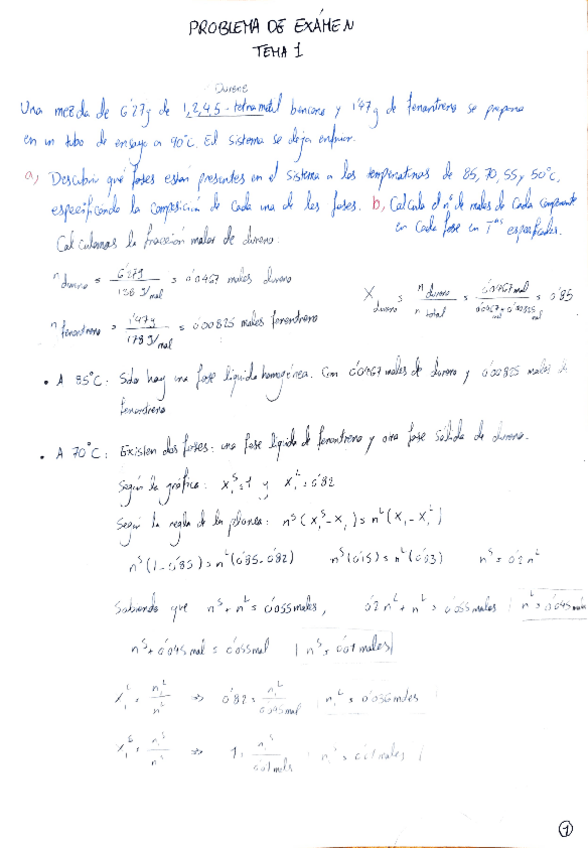 PROBLEMA DE EXÁMEN
TEMA 1
Dureno
Una mezcla de 6'27g de 1,2,4,5-tetrametil benceno y 1'47g de fenantreno se prepara
en un tubo de ensayo a 90°C. El sistema se deja enfriar.
a) Describir qué fases están presentes en el sistema a las temperaturas de 85, 70, 55 y 50°C,
especificando la composición de cada una de las fases. b) Calcula el nº de moles de cada componente
en cada fase en Tas especificadas.
Calculamos la fracción molar de dureno.
n dureno = 6'27g / 128 g/mol = 0'0467 moles dureno
X dureno = n dureno / n total = 0'0467 mol / 0'0467 mol + 0'00825 mol = 0'85
n fenantreno = 1'47g / 178 g/mol = 0'00825 moles fenantreno
• A 85°C: Solo hay una fase líquida homogénea. Con 0'0467 moles de dureno y 0'00825 moles de
fenantreno
• A 70°C: Existen dos fases: una fase líquida de fenantreno y otra fase sólida de dureno.
Según la gráfica: X₁ˢ = 1 y X₁ᴸ = 0'82
Según la regla de la palanca: nˢ(X₁ˢ - X₁) = nᴸ(X₁ - X₁ᴸ)
nˢ(1 - 0'85) = nᴸ(0'85 - 0'82) nˢ(0'15) = nᴸ(0'03) nˢ = 0'2 nᴸ
Sabiendo que nˢ + nᴸ = 0'055 moles, 0'2 nᴸ + nᴸ = 0'055 moles | nᴸ = 0'045 mol
nˢ + 0'045 mol = 0'055 mol | nˢ = 0'01 moles |
X₁ᴸ = n₁ᴸ / nᴸ ⇒ 0'82 = n₁ᴸ / 0'045 mol | n₁ᴸ = 0'036 moles |
X₁ˢ = n₁ˢ / nˢ ⇒ 1 = n₁ˢ / 0'01 mols | n₁ˢ = 0'01 moles |
1